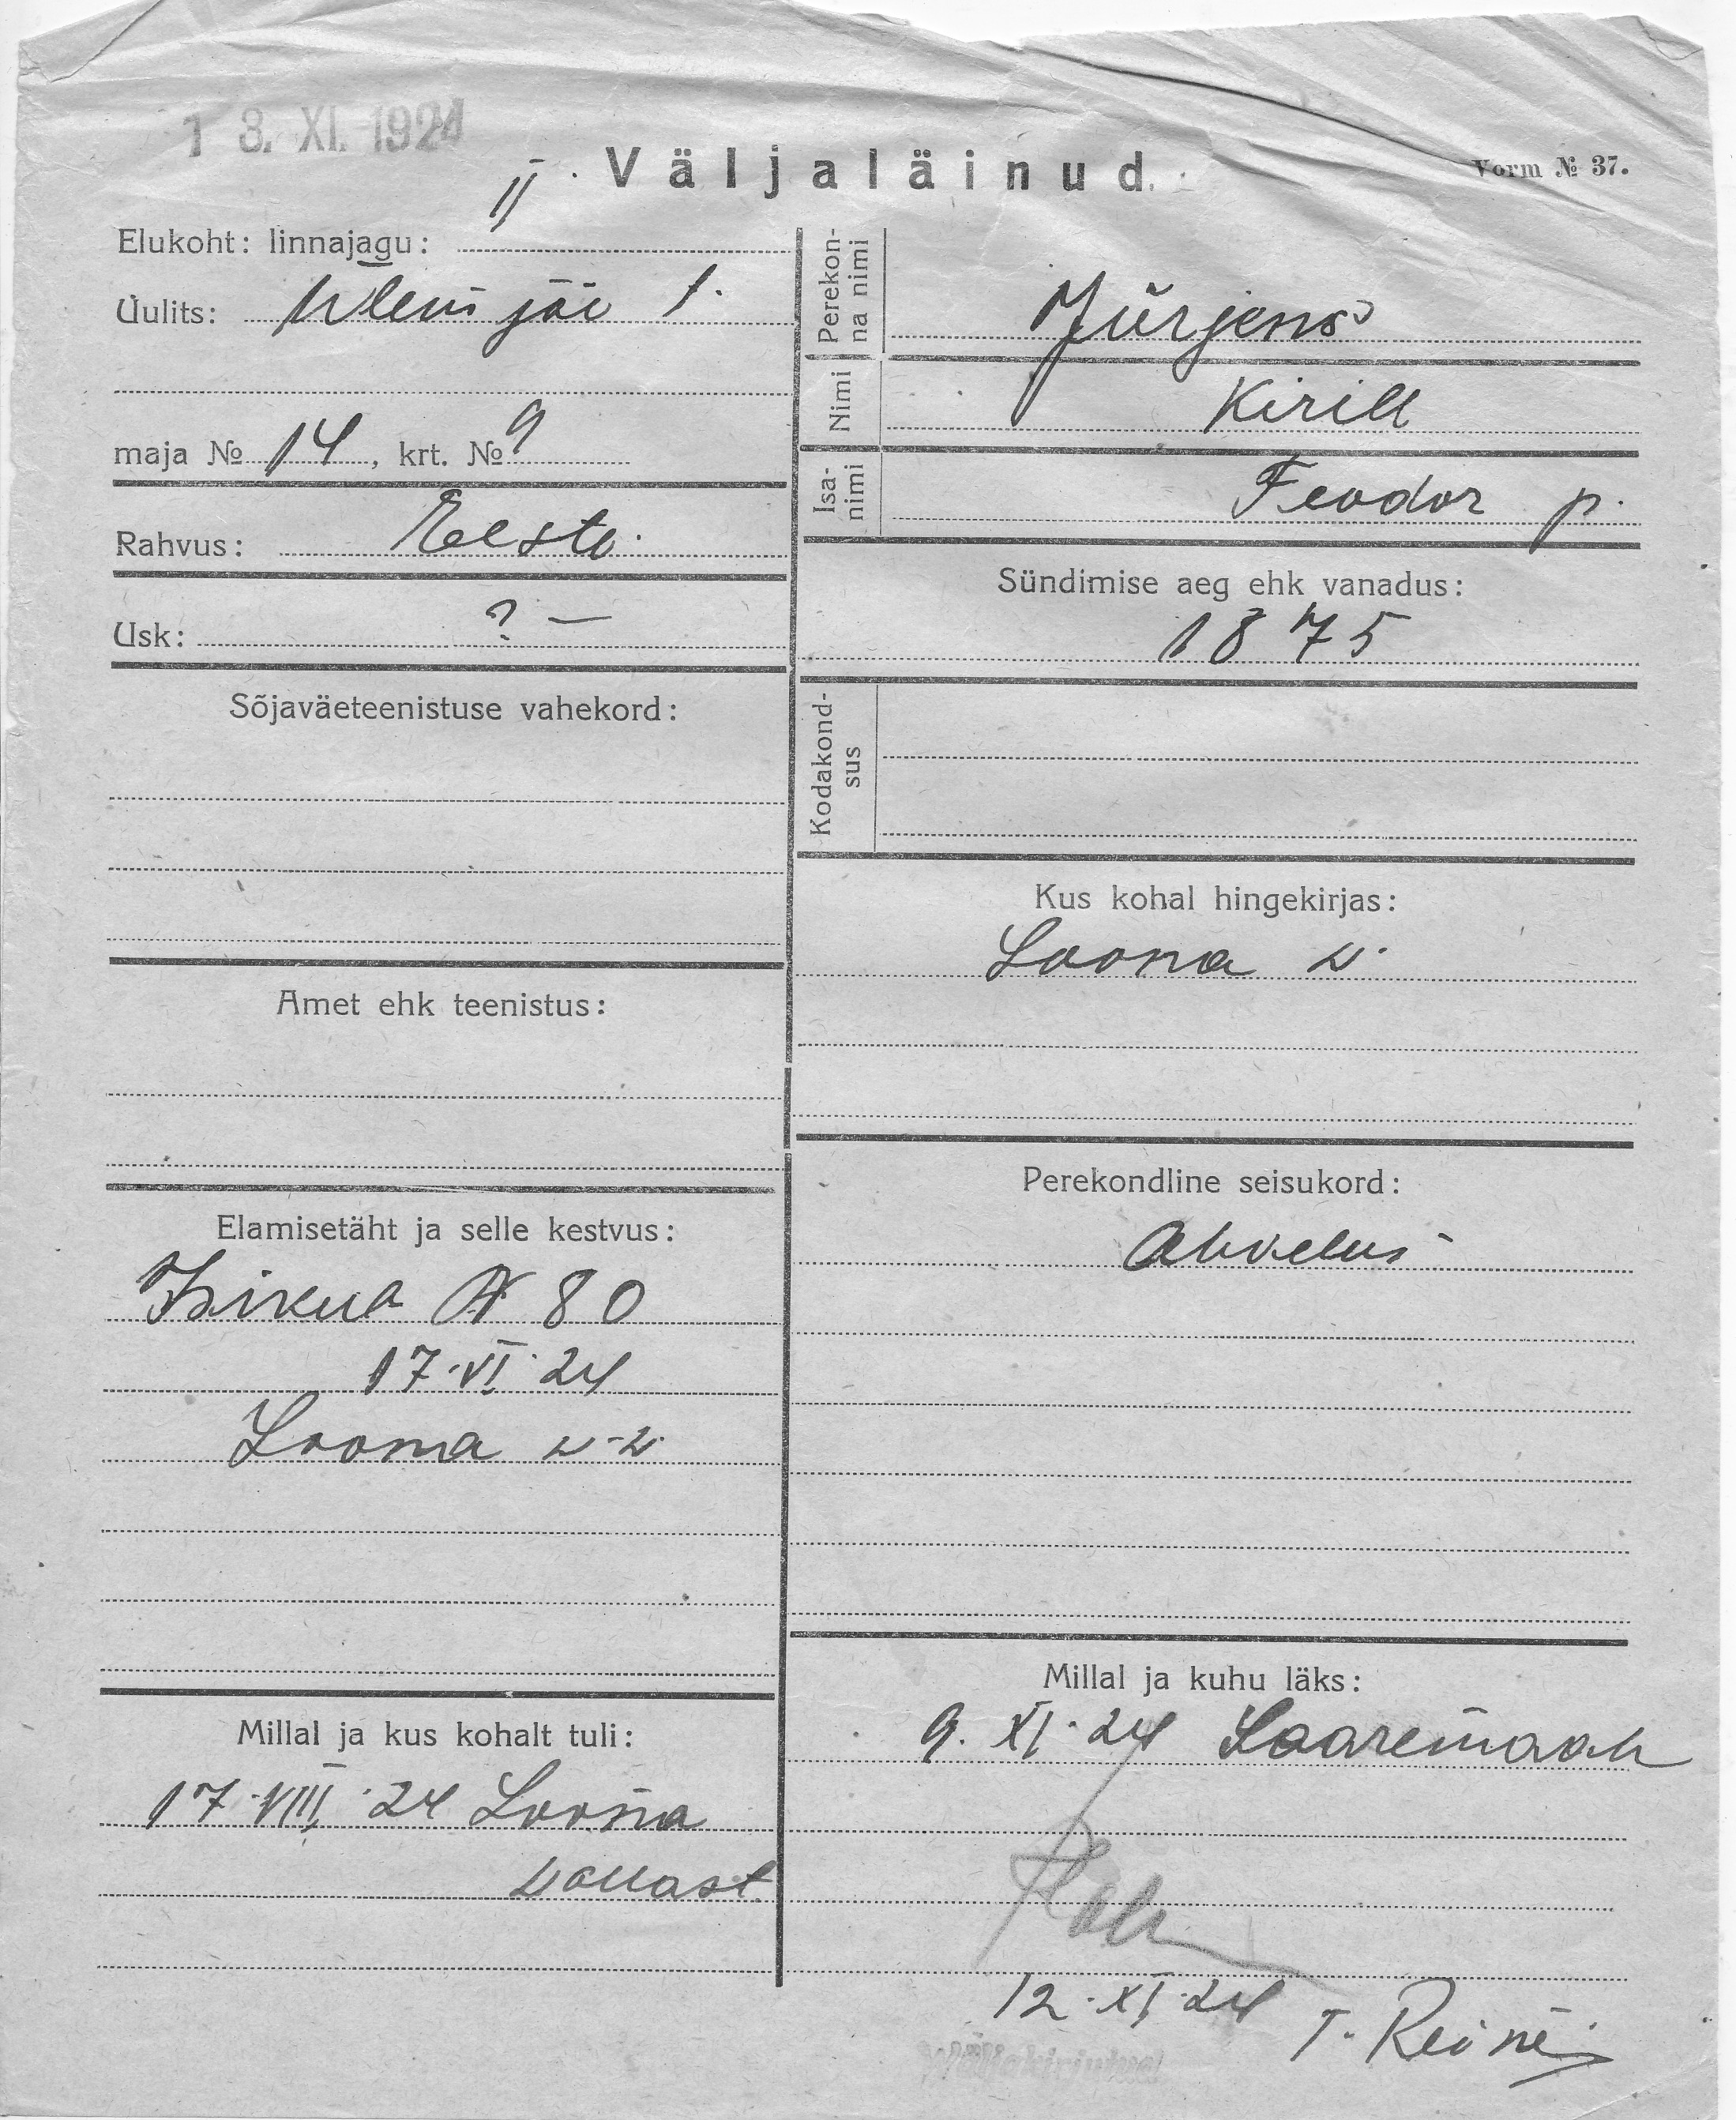 1 3. XI. 1924
Väljaläinud.
Vorm № 37.
Elukoht: linnajagu: II
Uulits: Ülemjõe t.
maja № 14, krt. № 9
Rahvus: Eesti.
Usk: ? —
Sõjaväeteenistuse vahekord:
Amet ehk teenistus:
Elamisetäht ja selle kestvus:
Isikut № 80
17.VI.24
Loona v-v.
Millal ja kus kohalt tuli:
17.VIII.24 Loona
vallast
Perekonna nimi
Jürjens
Nimi
Kirill
Isanimi
Feodor p.
Sündimise aeg ehk vanadus:
1875
Kodakondsus
Kus kohal hingekirjas:
Loona v.
Perekondline seisukord:
Abielus
Millal ja kuhu läks:
9. XI. 24 Saaremaale
12.XI.24 T. Rei